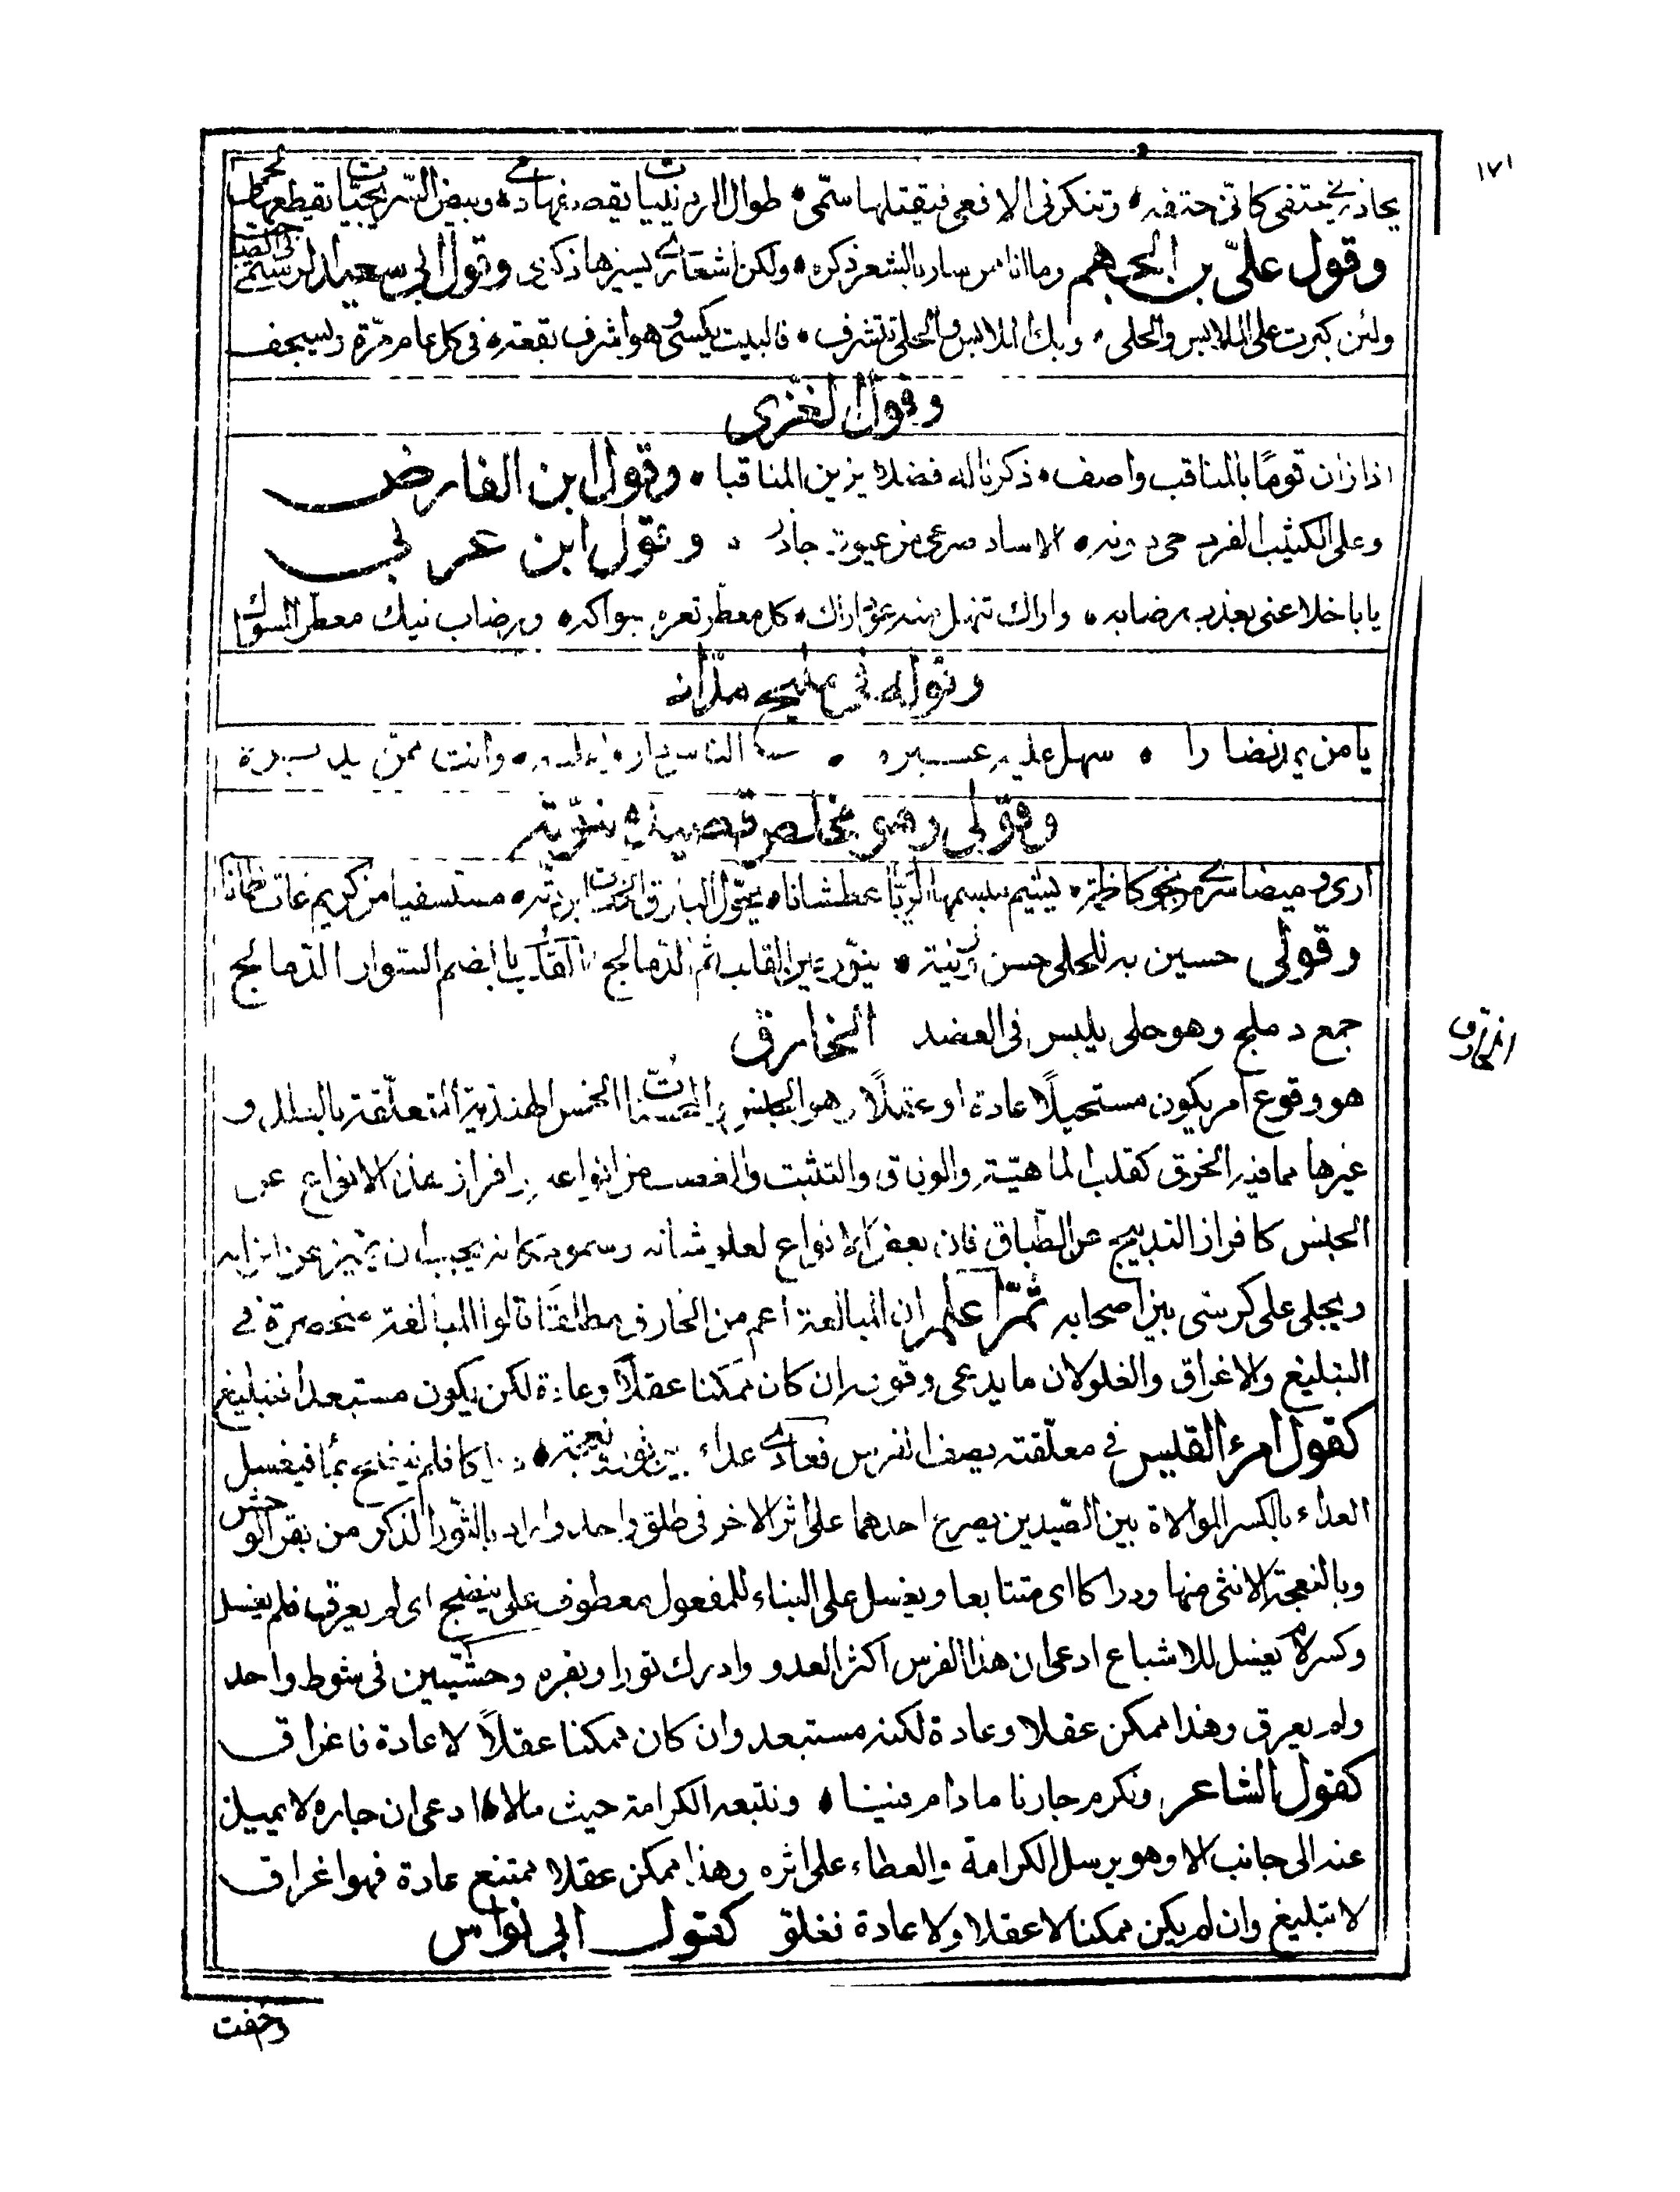 ١٧١
يحاذرني حتفي كاني حتفه وتنكزني الافعى فيقتلها سمى طوال الردينيات يقصفها دمى وبيض السريجيات يقطعها لحمى
وقول علي بن الجهم وما انا ممن سار بالشعر ذكره ولكن اشعارى يسيرها ذكرى وقول ابي سعيد الرستمي
ولئن كبرت على الملابس والحلى وبك الملابس والحلى تتشرف فالبيت يكسى وهو اشرف بقعة في كل عام مرة ويسجف
وقول الغزى
اذا زان قومًا بالمناقب واصف ذكرنا له فضلا يزين المناقبا وقول ابن الفارض
وعلى الكثيب الفرد حي دونه الاساد صرعى من عيون جاذر وقول ابن عربي
يا باخلا عنى بعذب رضابه واراك تنهل منه عود اراك كل معطر ثغره بسواكه ورضاب فيك معطر المسواك
وقوله في مليح
يا من نضارا سهل عليه عسيره الناس وانت ممن
وقولي وهو مخلص قصيدة نبوية
ارى وميضا سرى من نحو كاظمة يشيم مبسمها الريا عطشانا البارق مستسقيا من كريم غاث ظمانا
وقولي حسين به للحلى حسن زينة ينور القلب ثم الدمالج القلب بالضم السوار الدمالج
جمع دملج وهو حلى يلبس فى العضد الخارق
الخارق
هو وقوع امر يكون مستحيلًا عادة او عقلًا وهو الجنس الهندية المتعلقة و
غيرها مما فيه الخرق كقلب الماهية والوفاق والتشبث من انواعه افراز هذه الانواع عن
الجنس كافراز التدبيج عن الطباق فان بعض الانواع لعلو شانه وسمو مكانه يجب ان يتميز عن اترابه
ويجلى على كرسى بين اصحابه ثم اعلم ان المبالغة اعم من الخارق مطلقا قالوا المبالغة منحصرة في
التبليغ والاغراق والغلو لان ما يدعى وقوعه ان كان ممكنا عقلًا وعادة لكن يكون مستبعدا فتبليغ
كقول امرء القيس في معلقته يصف الفرس فعادى عداء بين ثور ونعجة دراكا فلم ينضح بماء فيغسل
العداء بالكسر الموالاة بين الصيدين يصرع احدهما على اثر الاخر فى طلق واحد واراد بالثور الذكر من بقر الوحش
وبالنعجة الانثى منها ودراكا اى متتابعا ويغسل على البناء للمفعول معطوف على ينضح اى لم يعرق فلم يغسل
وكسر لام يغسل للاشباع ادعى ان هذا الفرس اكثر العدو وادرك ثورا وبقره وحشيين فى شوط واحد
ولم يعرق وهذا ممكن عقلا وعادة لكنه مستبعد وان كان ممكنا عقلًا لا عادة فاغراق
كقول الشاعر ونكرم جارنا ما دام فينا ونتبعه الكرامة حيث مالا ادعى ان جاره لا يميل
عنه الى جانب الا وهو يرسل الكرامة والعطاء على اثره وهذا ممكن عقلا ممتنع عادة فهو اغراق
لا تبليغ وان لم يكن ممكنا لا عقلا ولا عادة فغلو كقول ابي نواس
واخفت